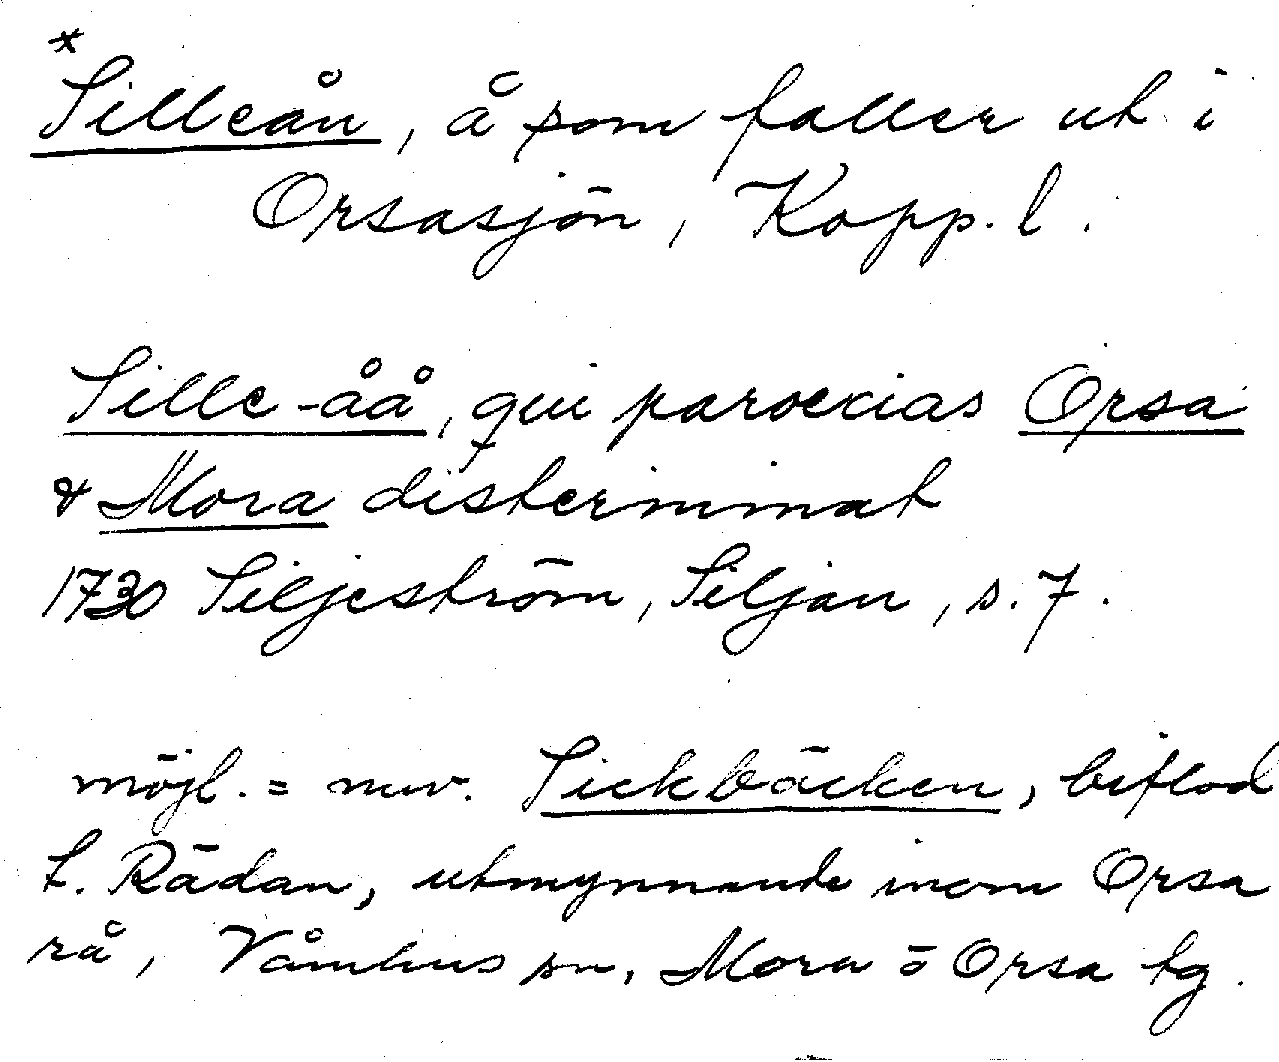 *
Silleån, å som faller ut i
Orsasjön, Kopp. l.
Sille-åå, qui paroecias Orsa
& Mora disterminat
1730 Siljeström, Siljan, s. 7.
möjl. = nuv. Sickbäcken, biflod
t. Rädan, utmynnande inom Orsa
rå, Våmhus sn, Mora o Orsa tg.